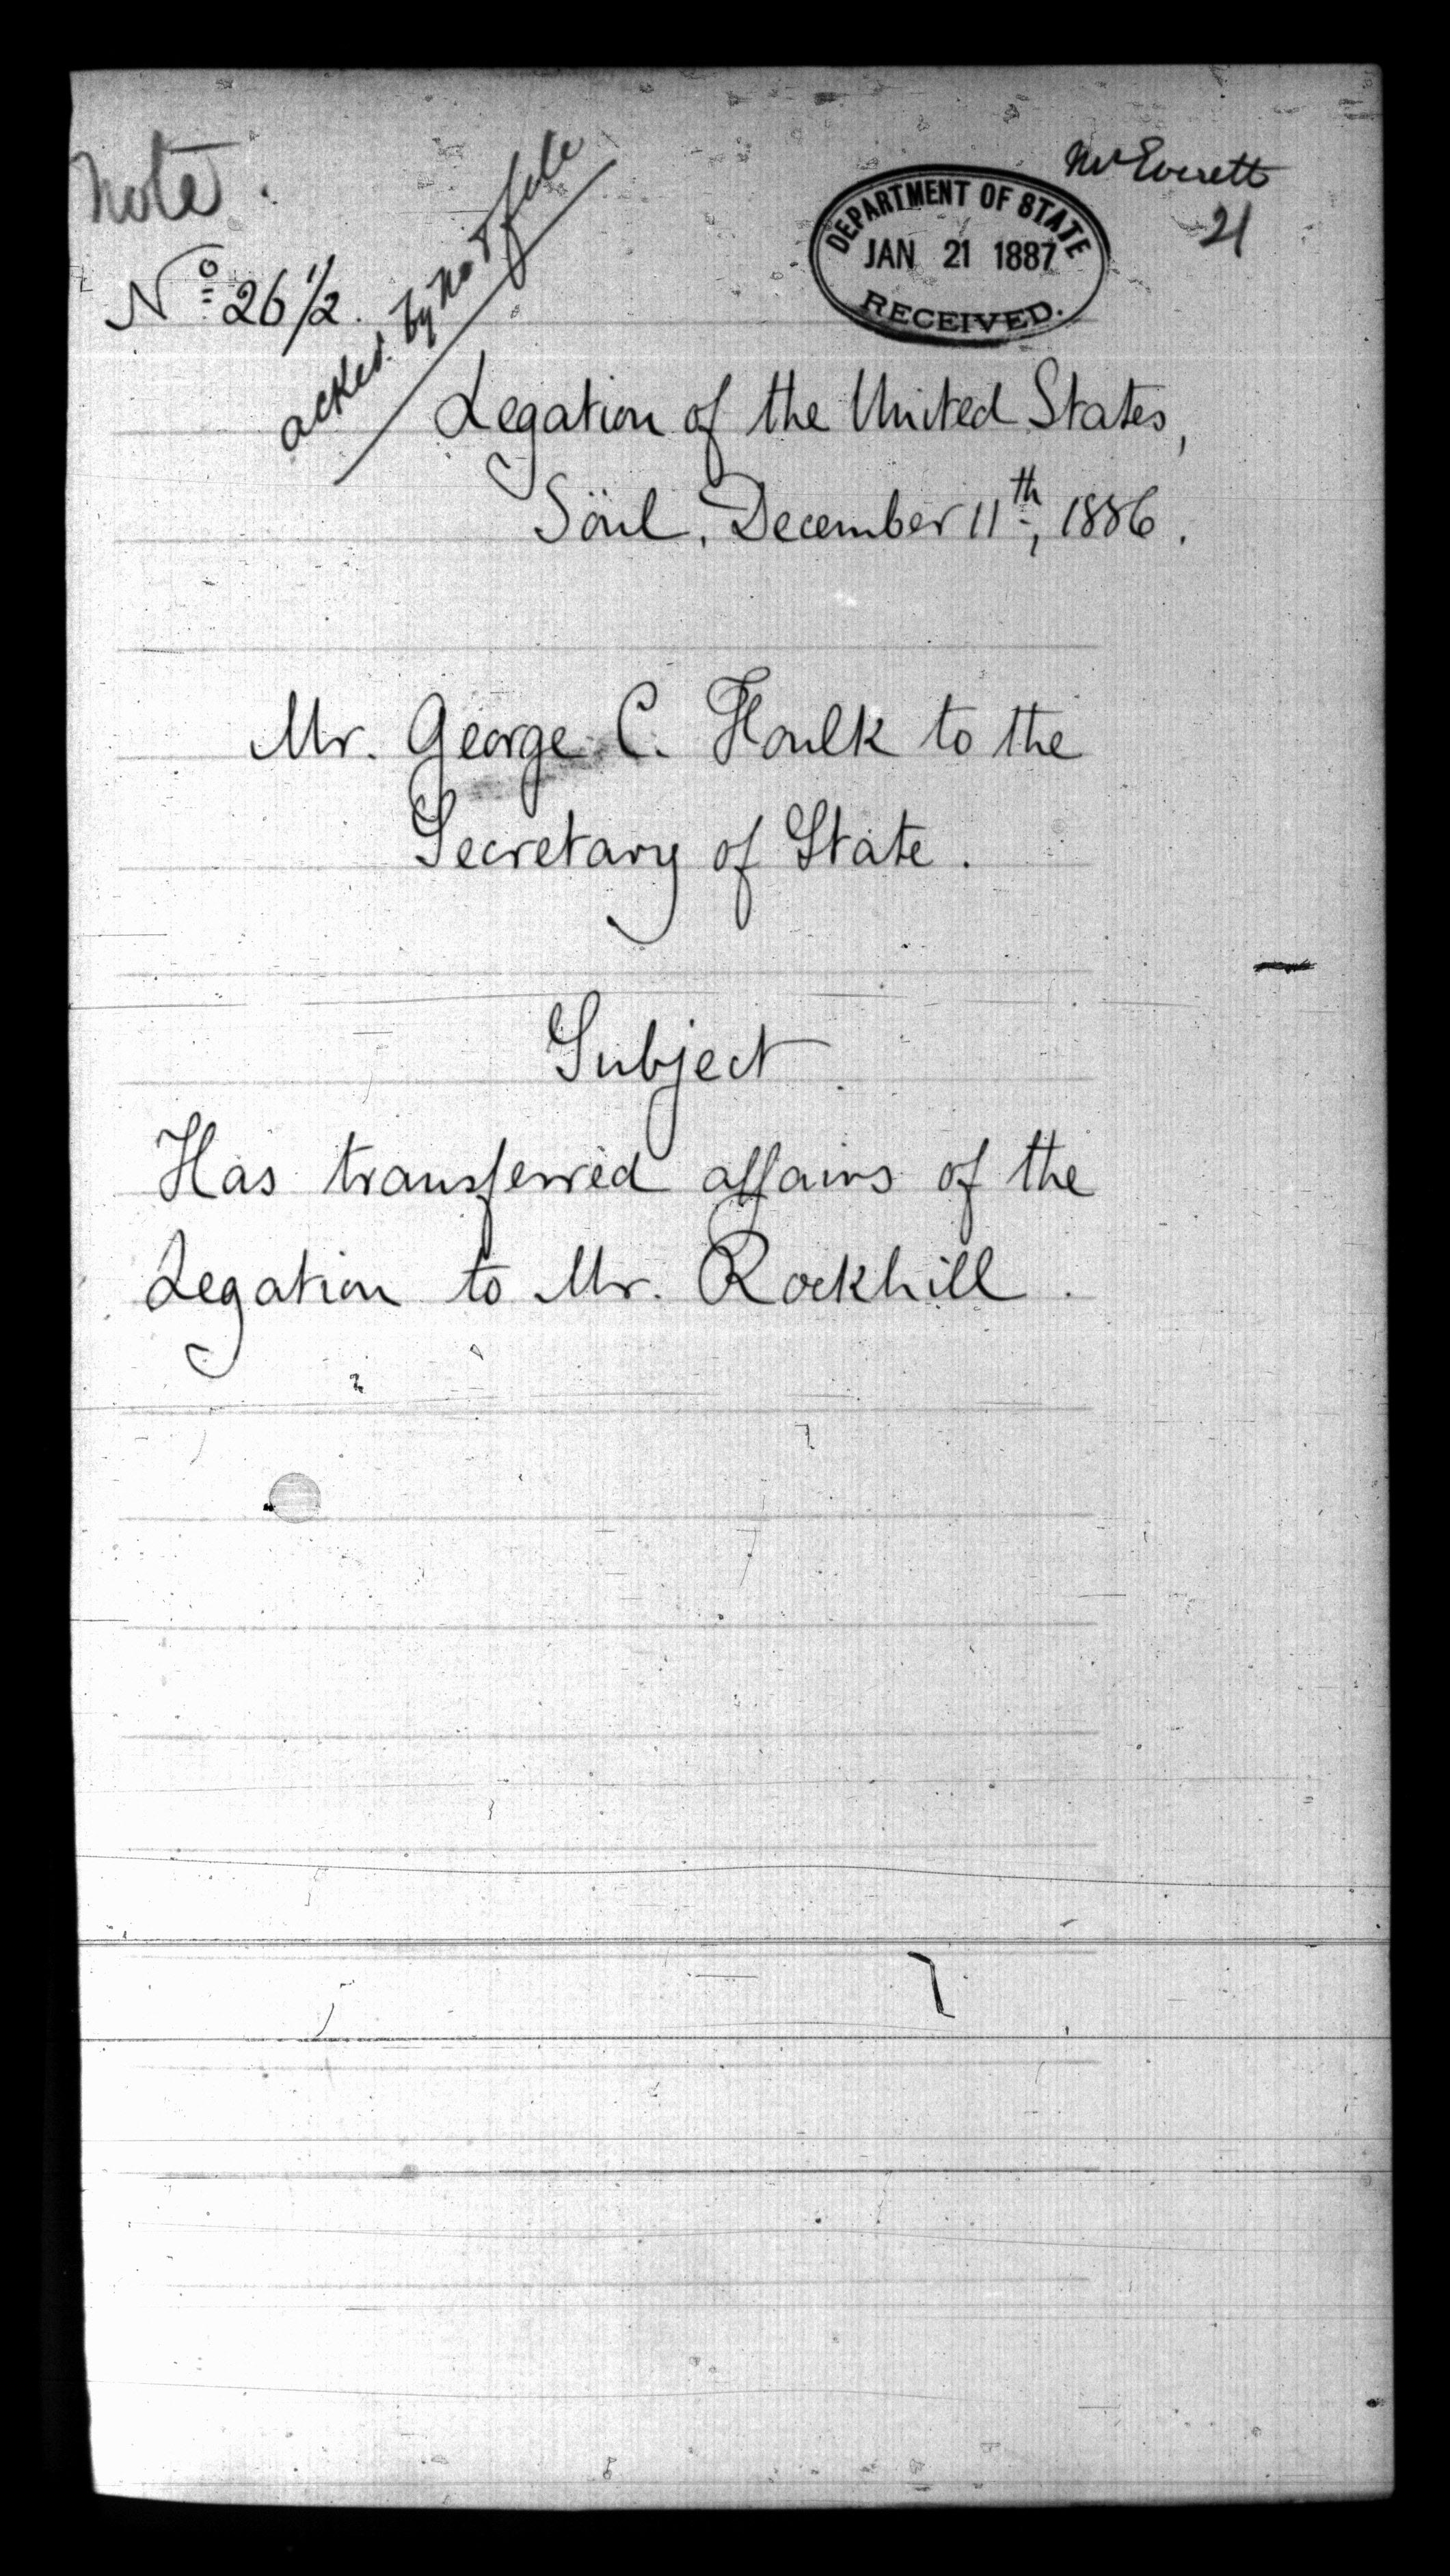 Note.
Mr Everett
21
DEPARTMENT OF STATE
JAN 21 1887
RECEIVED.
Nº 26 1/2.
acked. by No file
Legation of the United States,
Söul, December 11th, 1886.
Mr. George C. Foulk to the
Secretary of State.
Subject.
Has transferred affairs of the
Legation to Mr. Rockhill.